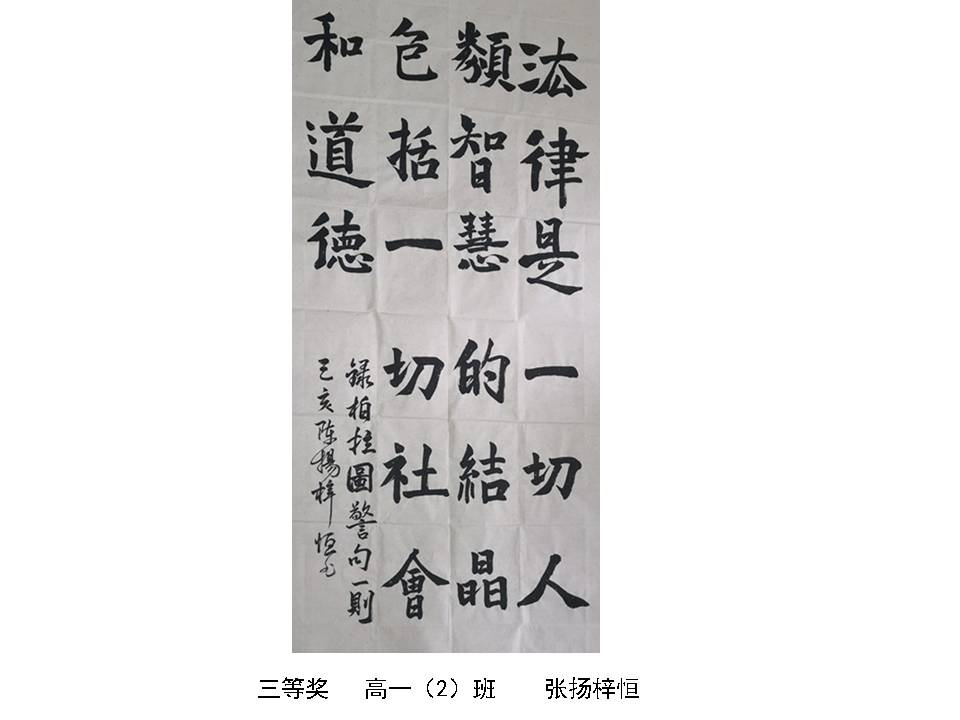 法律是一切人
類智慧的結晶
包括一切社會
和道德
録柏拉圖警句一則
己亥陈揚梓恒书
三等奖 高一（2）班 张扬梓恒